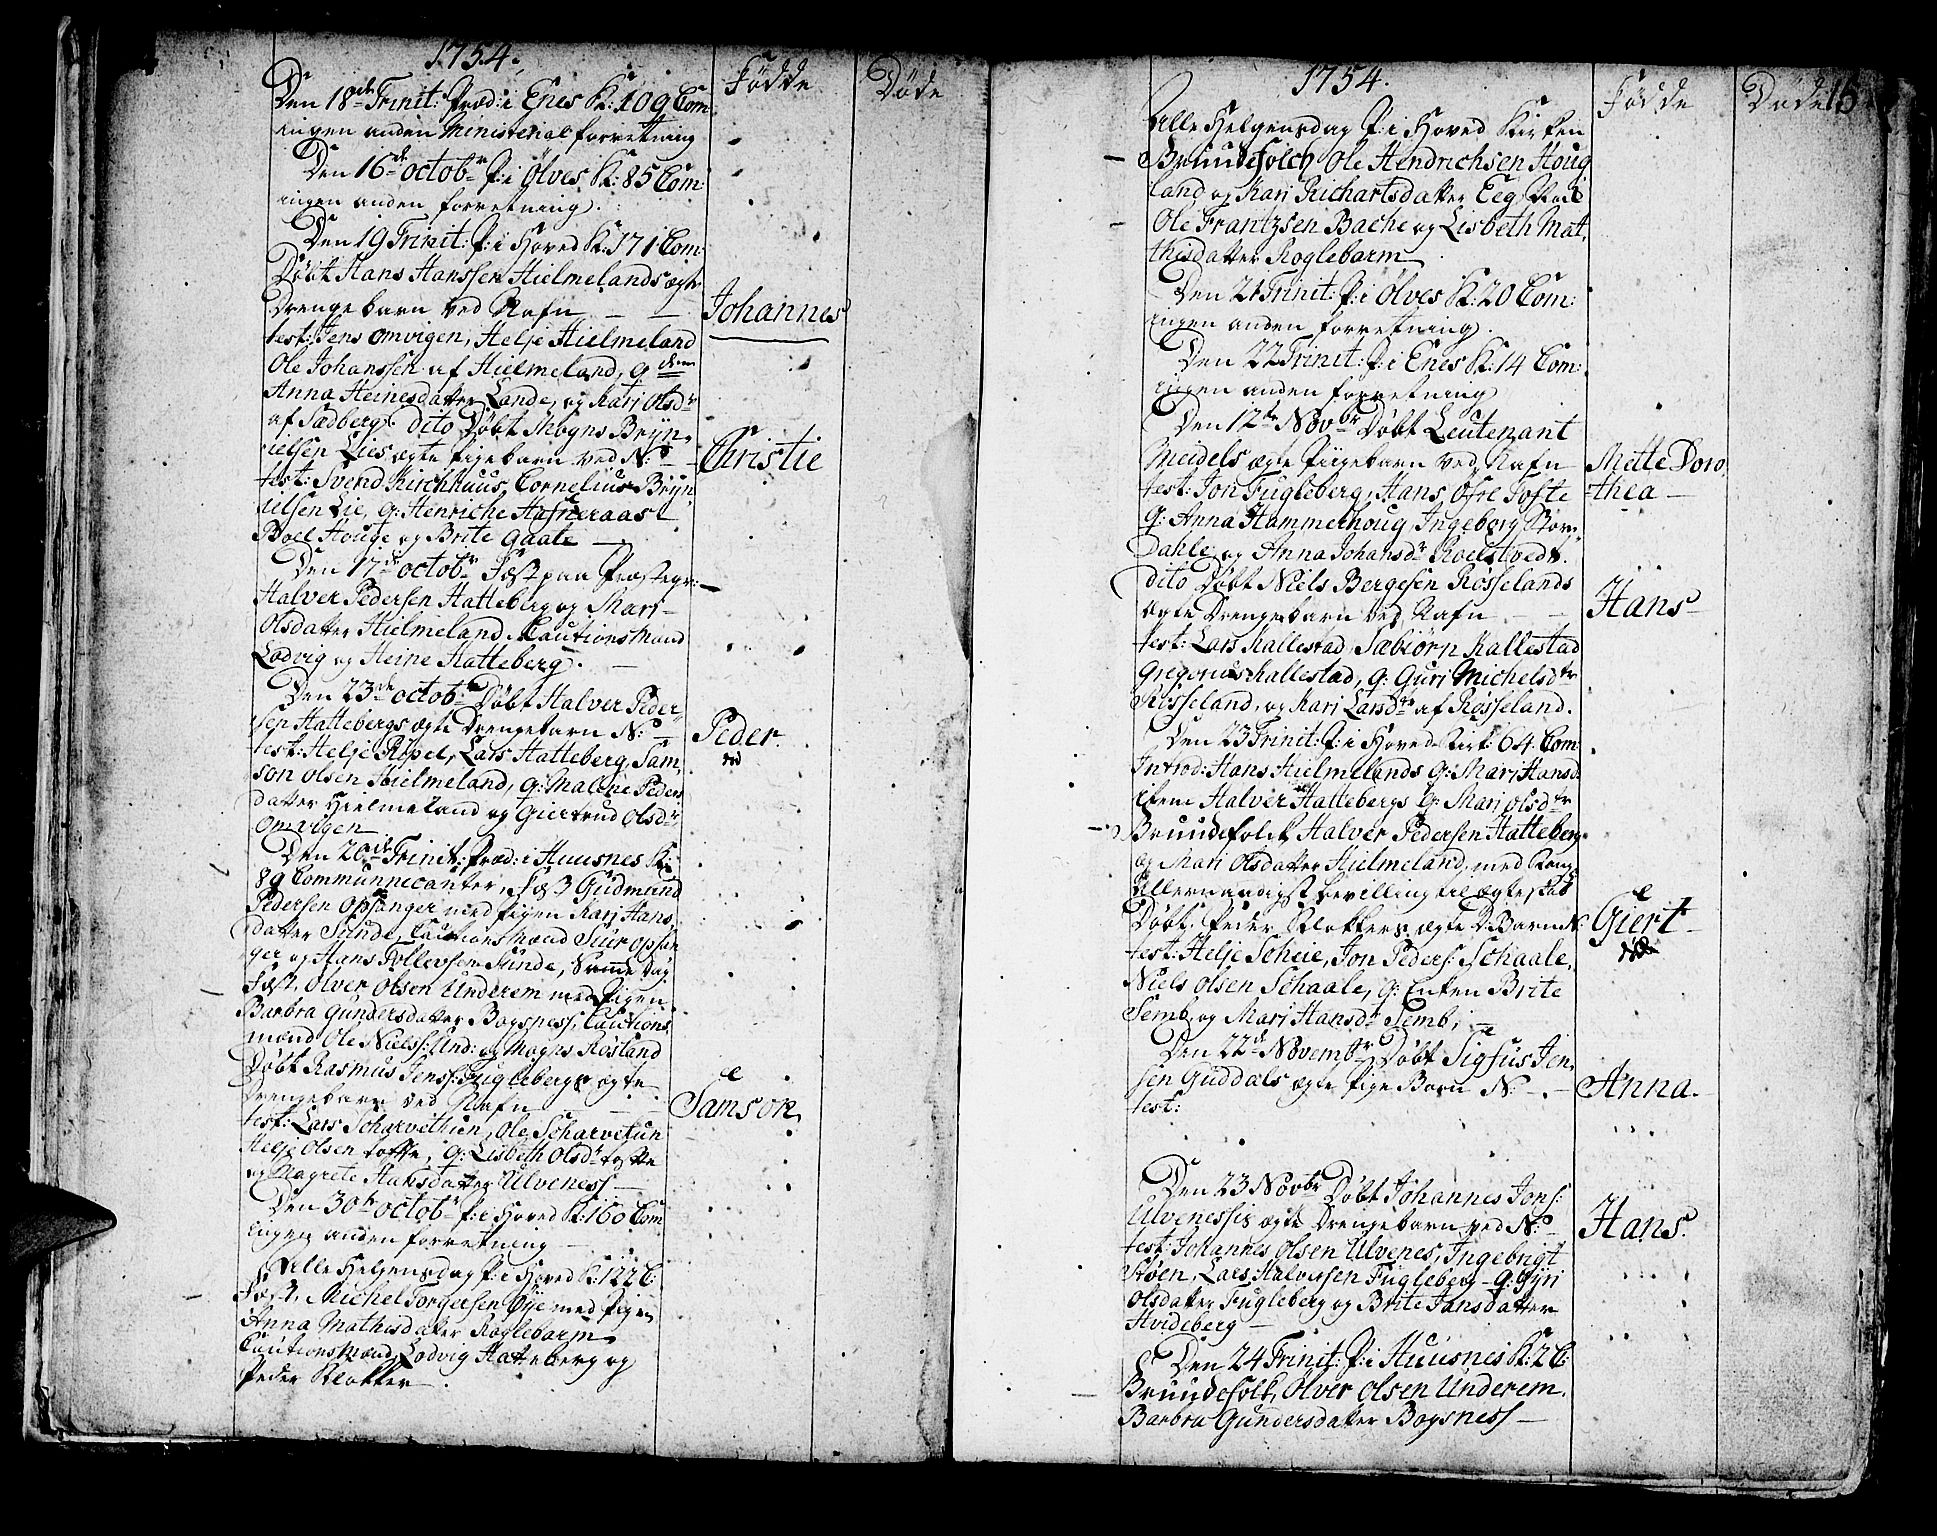 1754.
Fødde
Døde
Den 18de Trinit: Præd: i Enes K: 109 Com
ingen anden Ministerial forretning
Den 16de octobr P: i Ølves K: 85 Com:
ingen anden forretning.
Den 19 Trinit: P: i Hoved K: 171 Com:
Døbt Hans Hanssen Hielmelands ægte
Drengebarn ved Nafn —
Johannes
test: Jens omvigen, Helje Hielmeland
Ole Johanssen af Hielmeland, q
Anna Heinesdatter Lande, og Kari Olsdr
af Sædberg. dito Døbt Mogns Bryn-
ielsen Lies ægte Pigebarn ved N: —
Christie
test: Svend Kirchhuus, Cornelius Bryn-
ielsen Lie, q: Henriche Hafneraas
Boel Houge og Brite Gaate —
Den 17de octobr Fæst paa Præstegr:
Halver Pedersen Hatteberg og Mari
Olsdatter Hielmeland. Cautions Mænd
Lodvig og Heine Hatteberg. —
Den 23de octobr Døbt Halver Peder-
sen Hattebergs ægte Drengebarn N: —
Peder.
test: Helje Ripel, Lars Hatteberg, Sam-
son olsen Hielmeland, q: Malene Peders
datter Hielmeland og Giertrud Olsdr
Omvigen
Den 20de Trinit: Præd: i Huusnes K:
89 Communnicanter, Fæst Gudmund
Pedersen Opsanger med Pigen Kari Hans-
datter Sunde, Cautionsmænd Siur Opsan-
ger og Hans Tollevsen Sunde, Samme dag
Fæst, Olver Olsen Underem med Pigen
Barbra Gundersdatter Bogsness, Cautions
mænd Ole Nielss: Und: og Mogns Røsland
Døbt Rasmus Jenss: Fuglebergs ægte
Drengebarn ved Nafn —
Samson
test: Lars Scharvethun, Ole Scharvetun
Helje Olsen tofte, q: Lisbeth Olsdr tofte
og Magrete Hansdatter Ulveness —
Den 30te octobr P: i Hoved K: 160 Com
ingen anden forretning —
Alle Helgensdag P: i Hoved K: 122 C:
Fæst, Michel Torgersen Øye med Pigen
Anna Mathisdatter Røglebarm
Cautionsmænd Lodvig Hatteberg og
Peder Klokker —.
1754.
Fødde
Døde
15
Alle Helgensdag P: i Hoved Kirken
Bruudefolch Ole Hendrichsen Houg
land og Kari Richartsdatter Eeg,
Ole Frantzsen Bache og Lisbeth Mat-
thisdatter Røglebarm
Den 21 Trinit: P: i Ølves K: 20 Com:
ingen anden forretning.
Den 22 Trinit: P: i Enes K: 14 Com:
ingen anden forretning
Den 12te Novbr Døbt Leutenant
Meidels ægte Piigebarn ved Nafn
Mette Doro-
thea —
test: Jon Fugleberg, Hans Ofre Tofte
q: Anna Hammerhoug Ingeborg
Dahle og Anna Johansdr
dito Døbt Niels Bergesen Røsselands
ægte Drengebarn ved Nafn —
Hans
test: Lars Kallestad, Sæbiörn Kallestad
Gregorius Kallestad, q: Guri Michelsdtr
Røsseland, og Kari Larsdtr af Røsseland.
Den 23 Trinit: P: i Hoved Kirk: 64 Com
Introd: Hans Hielmelands Q: Mari Hansd.
item Halver Hattebergs Q: Mari olsdtr
Bruudefolch Halver Pedersen Hatteberg
og Mari Olsdatter Hielmeland, med Kong:
Allernaadigst bevilling til ægteskab
Døbt, Peder Klokkers ægte D: Barn N:
Giert
død
test: Helje Scheie, Jon Peders: Schaale,
Niels Olsen Schaale, q: Enken Brite
Semb, og Mari Hansdr Semb, —
Den 22de Novembr Døbt Sigfus Jen-
sen Guddals ægte Pige Barn N: —
Anna.
test:
Den 23 Novbr Døbt Johannes Jons:
Ulvenessis ægte Drengebarn ved N: —
Hans.
test: Johannes Olsen Ulvenes, Ingebrigt
Støen, Lars Halversen Fugleberg — q: Gyri
Olsdatter Fugleberg og Brite Jansdatter
Hvideberg —
Den 24 Trinit: P: i Huusnes K: 2 C:
Bruudefolk, Ølver Olsen Underem.
Barbra Gundersdatter Bogsness —